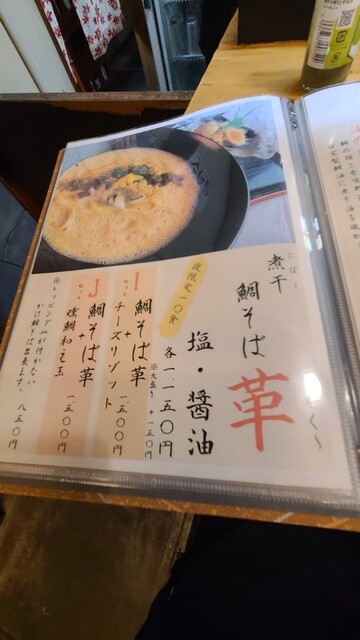 にぼし
煮干
鯛そば 革
塩・醤油
夜限定一〇食
各一一五〇円
※大盛り +一五〇円
I
セット
鯛そば革
+
チーズリゾット
一五〇〇円
J
セット
鯛そば革
+
燻鯛和え玉
一五〇〇円
※トッピングが付かない
かけ鯛そば出来ます。 八五〇円